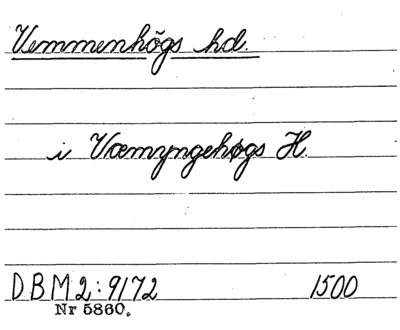 Vemmenhögs hd.
i Væmyngehøgs H.
DBM2:9172 1500
Nr 5860.